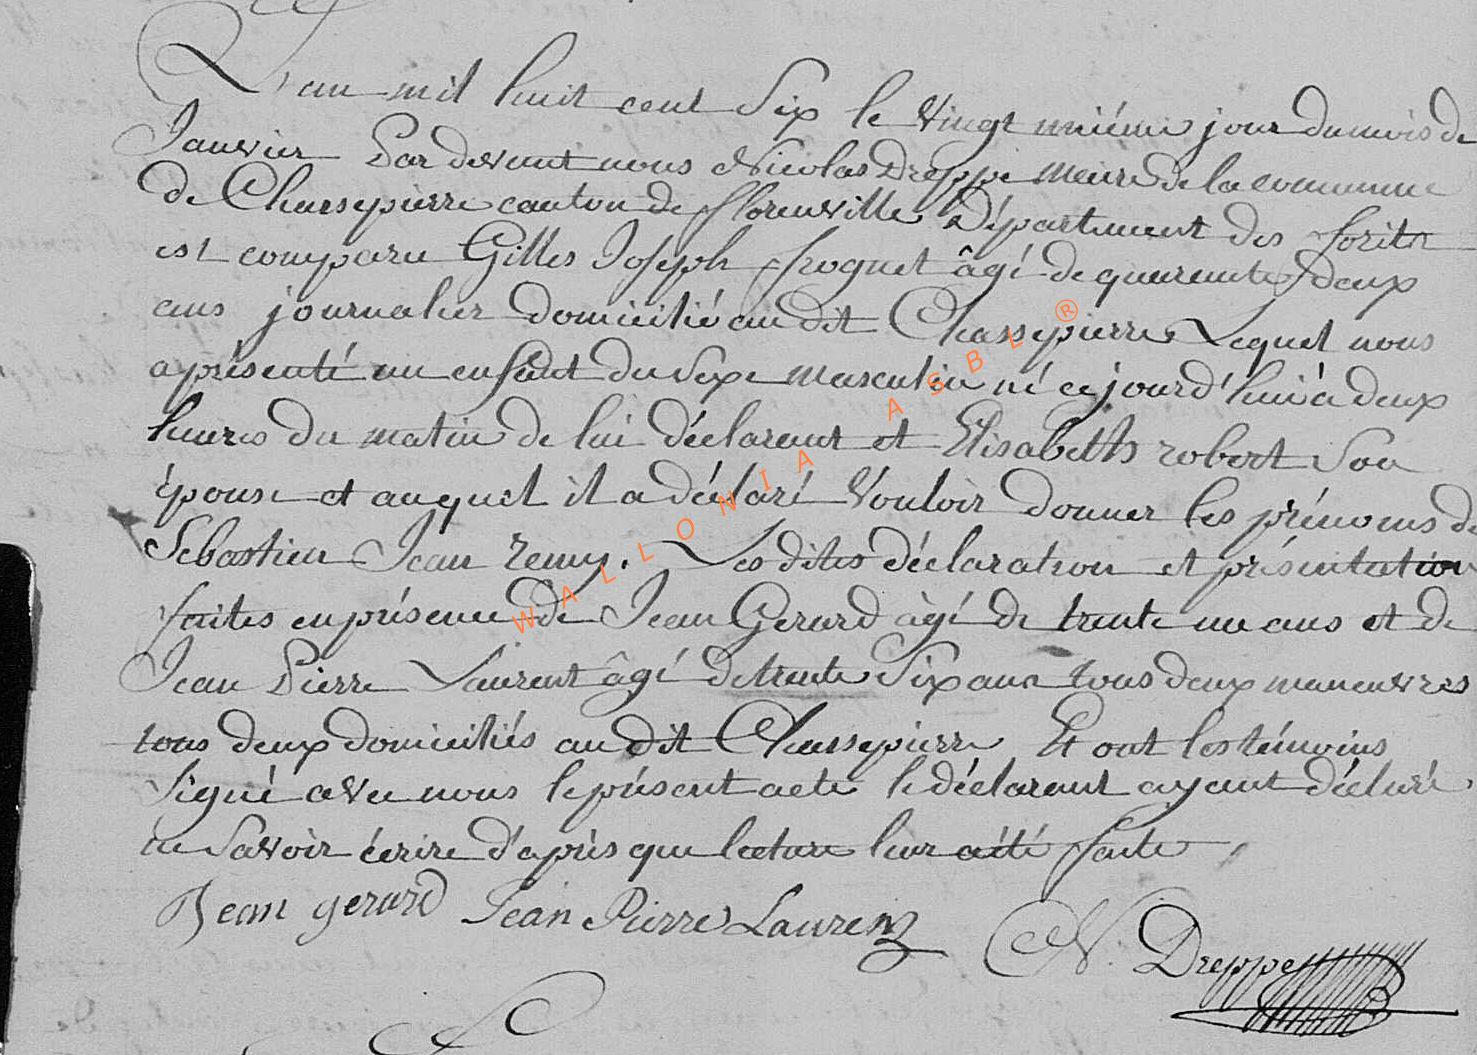 L'an mil huit cent Six le Vingt uniéme jour du mois de
Janvier Par devant nous Nicolas Dreppe Maire de la commune
de Chassepierre canton de florenville Département des forêts
est comparu Gilles Joseph froguet âgé de quarente deux
ans journalier domicilié au dit Chassepierre Lequel nous
a présenté un enfant du Sexe masculin né ce jourd'hui à deux
heures du matin de lui déclarant et Elisabeth robert Son
épouse et auquel il a déclaré Vouloir donner les prénoms de
Sebastien Jean remy. Les dites déclaration et présentation
faites en présence de Jean Gerard âgé de trente un ans et de
Jean Pierre Laurent âgé de trente Six ans tous deux maneuvres
tous deux domiciliés au dit Chassepierre Et ont les témoins
Signé avec nous le présent acte le déclarant ayant déclaré
ne Savoir écrire d'après que lecture leur a été faite
Jean gerard Jean Pierre Laurent N. Dreppe
WALLONIA ASBL ®